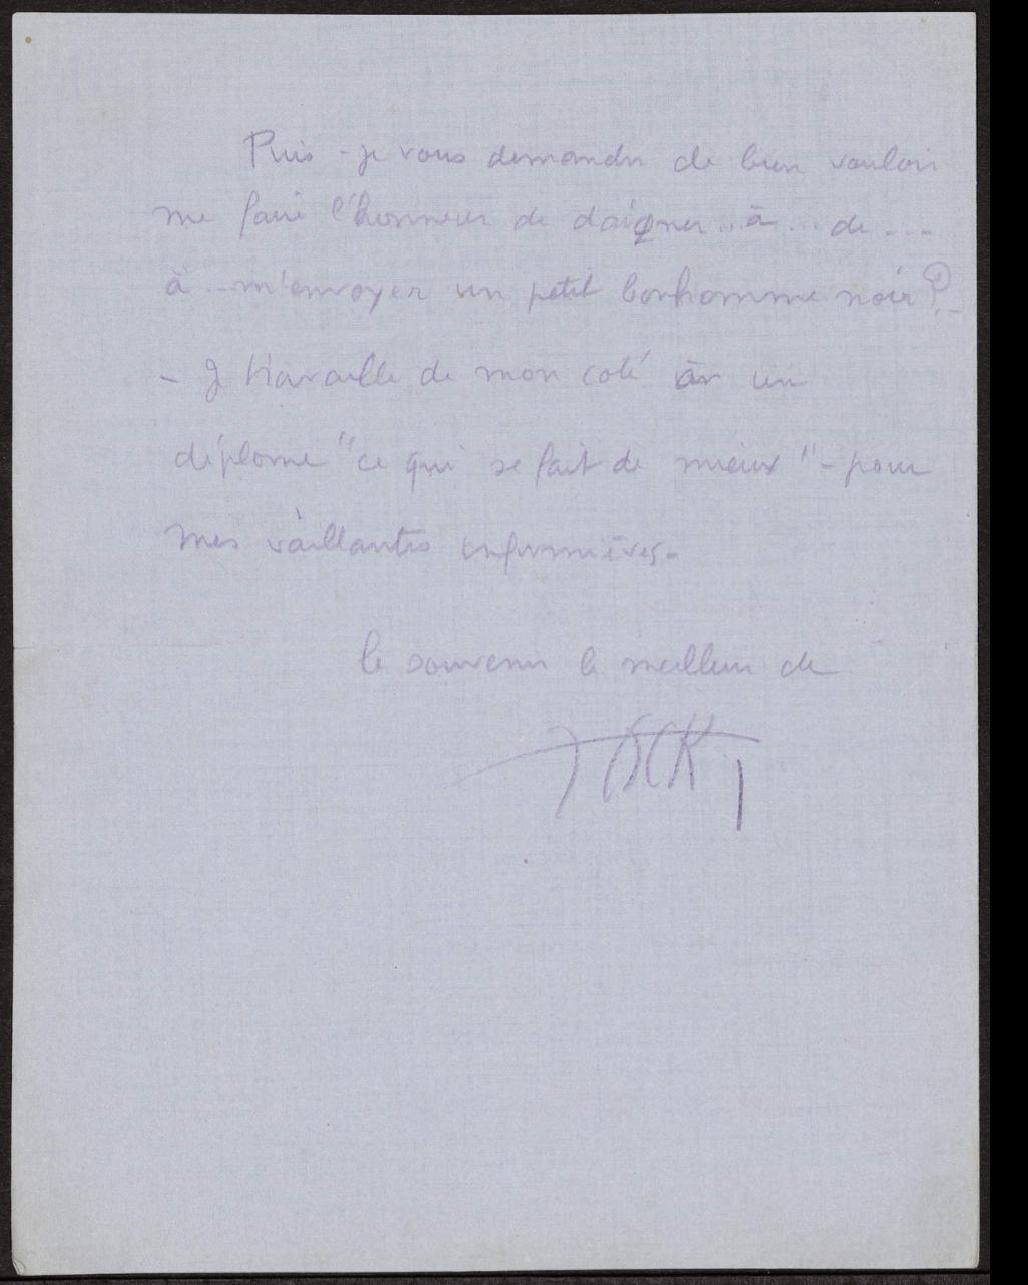 Puis-je vous demander de bien vouloir
me faire l'honneur de daigner.. à... de....
à...m'envoyer un petit bonhomme noir?.-
- Je travaille de mon coté à un
diplome "ce qui se fait de mieux" - pour
mes vaillantes infirmières.
le souvenir le meilleur de